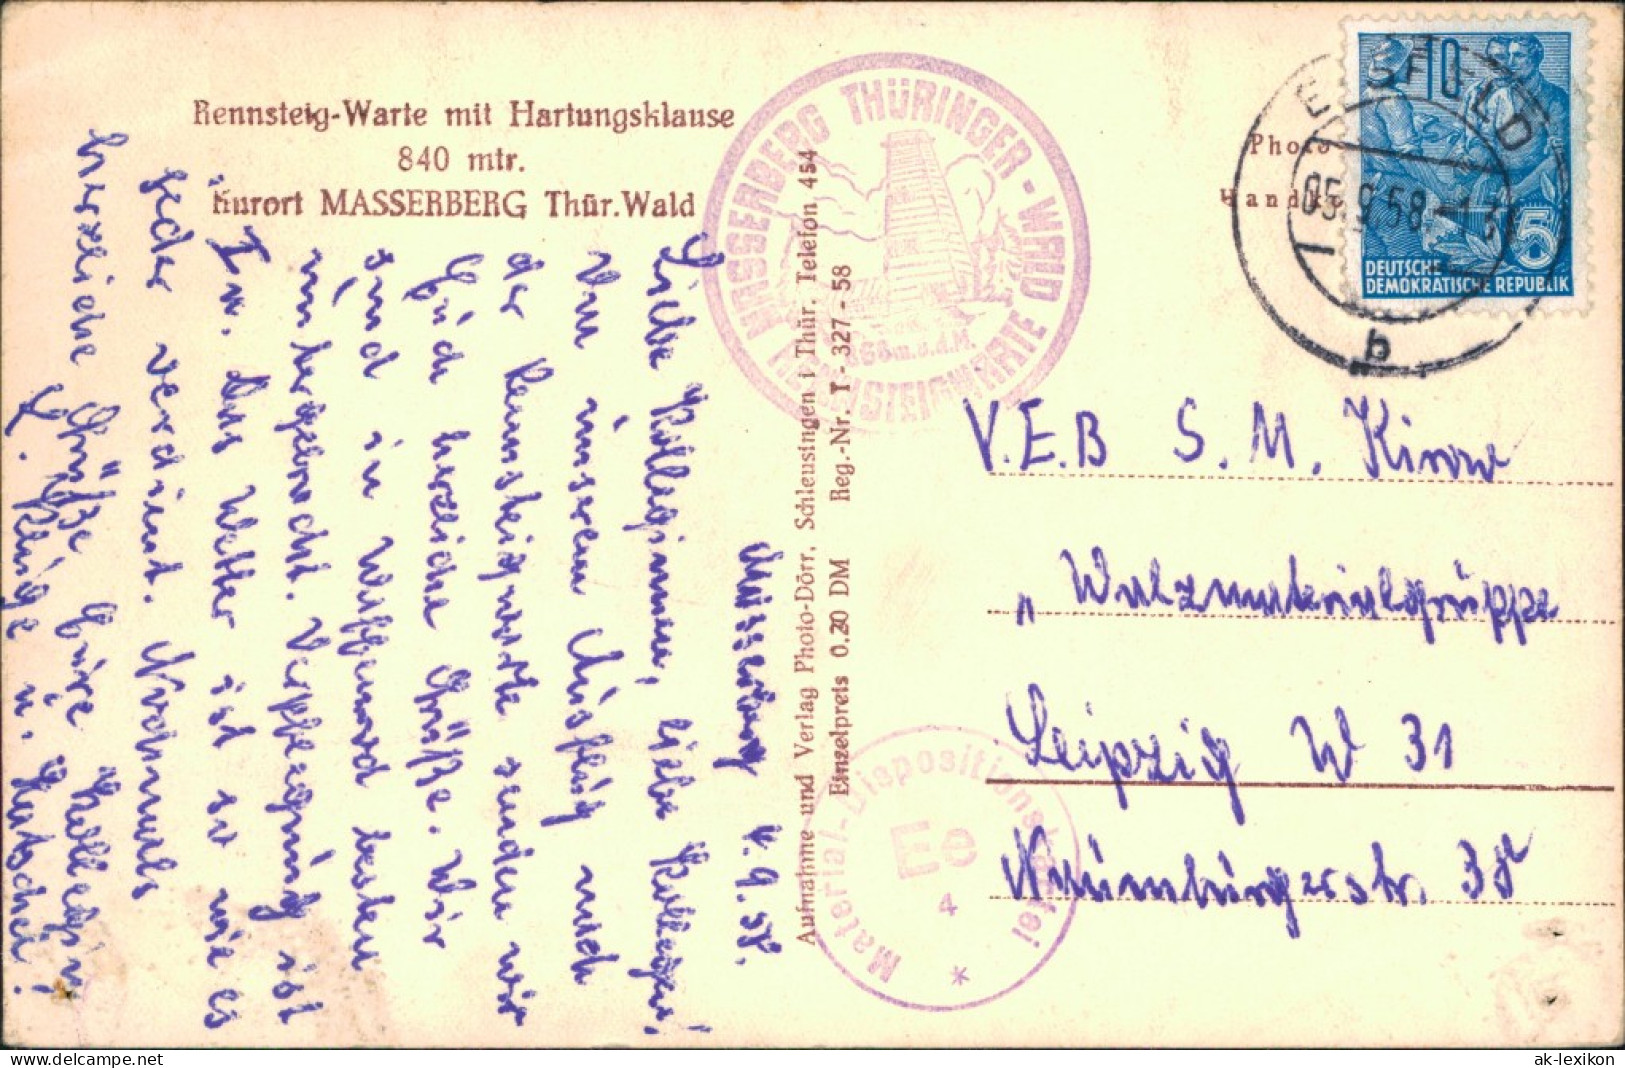 Rennsteig-Warte mit Hartungsklause
840 mtr.
Kurort MASSERBERG Thür.Wald
MASSERBERG THÜRINGER-WALD
RENNSTEIGWARTE
m.ü.d.M.
Photo
Hand
EISFELD
05.9.58-13
b
10
5
DEUTSCHE
DEMOKRATISCHE REPUBLIK
Aufnahme und Verlag Photo-Dörr, Schleusingen i Thür. Telefon 454
Einzelpreis 0.20 DM Reg.-Nr. T-327-58
Masserberg 4.9.58.
Liebe Kolleginnen, liebe Kollegen,
Von unserem Ausflug nach
der Rennsteigwarte senden wir
Euch herzliche Grüße. Wir
sind in besten
untergebracht. Verpflegung ist
Ia. Das Wetter ist so wie es
jeder verdient. Nochmals
herzliche Grüße Eure Kollegin
L. Kluge u.
V.E.B S. M. Kirow
" Walzmaterialgruppe
Leipzig W 31
Naumburgerstr. 38
Material-Dispositionskartei
Ee
4
*
ak-lexikon